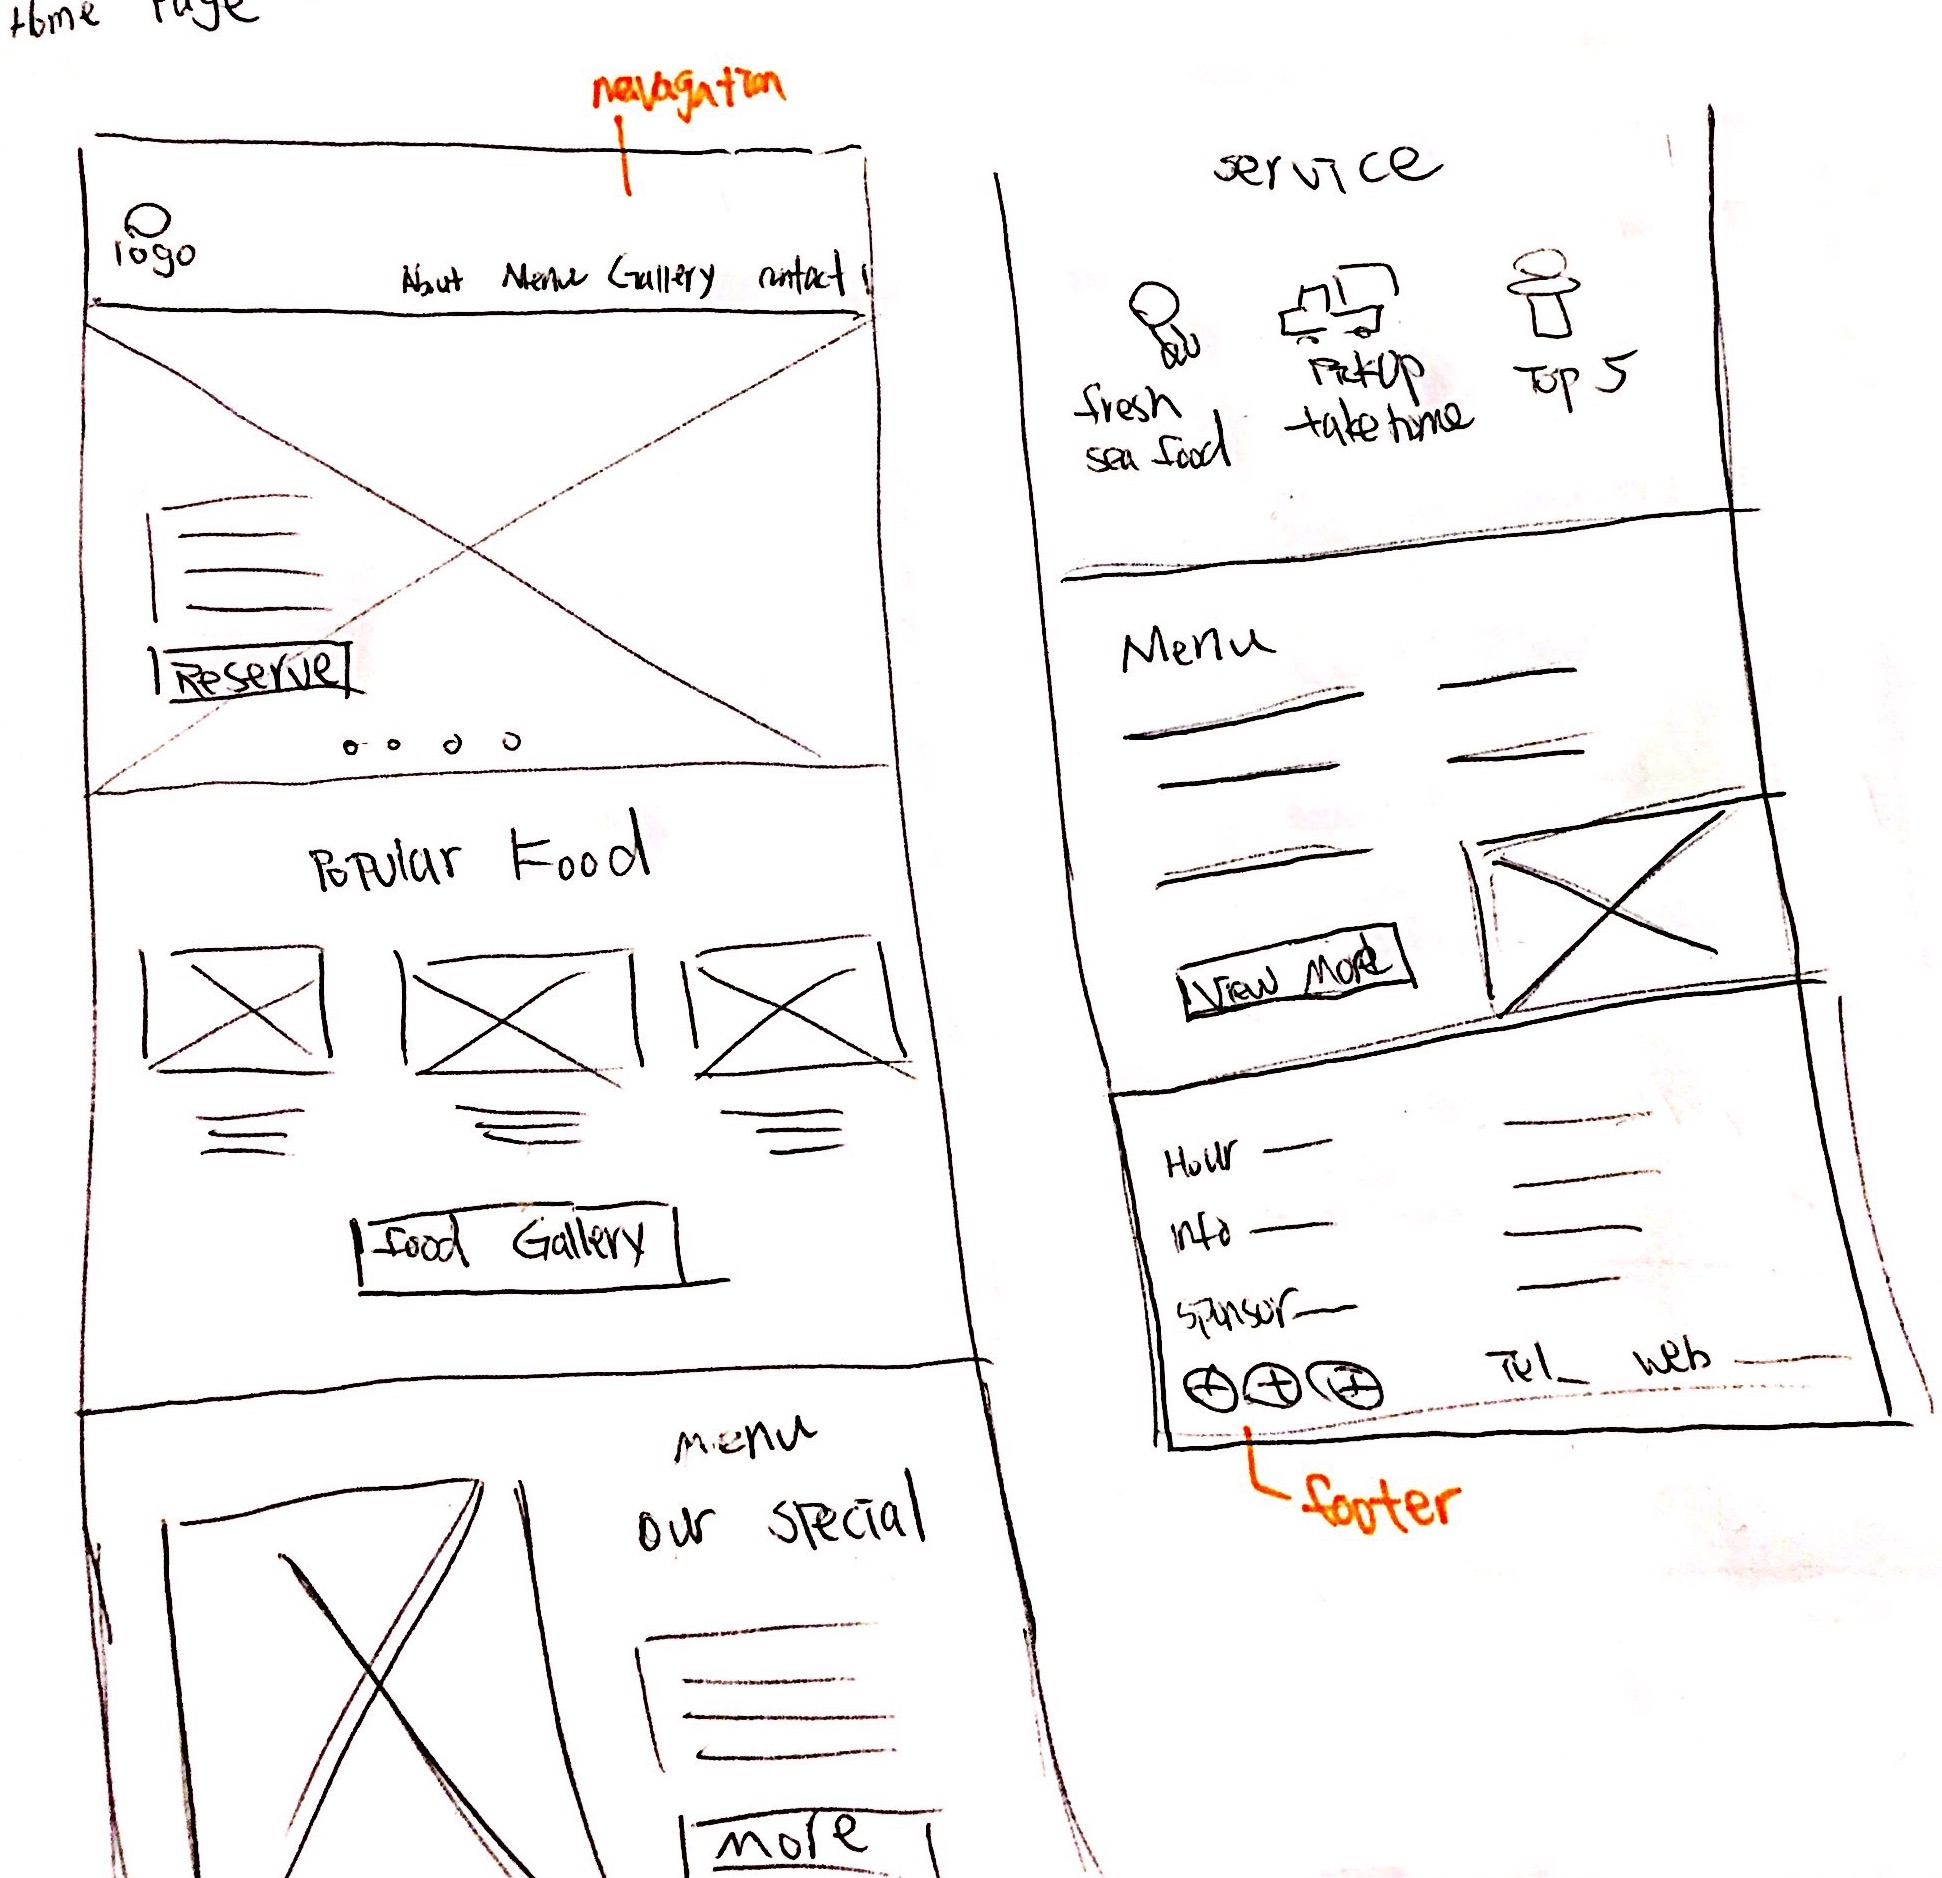 Home Page
navagation
logo
About Menu Gallery contact
Reserve
Popular Food
food Gallery
Menu
our special
More
service
fresh
sea food
PickUp
take home
Top 5
Menu
View More
Hour
info
sponsor
Tel_ web
footer